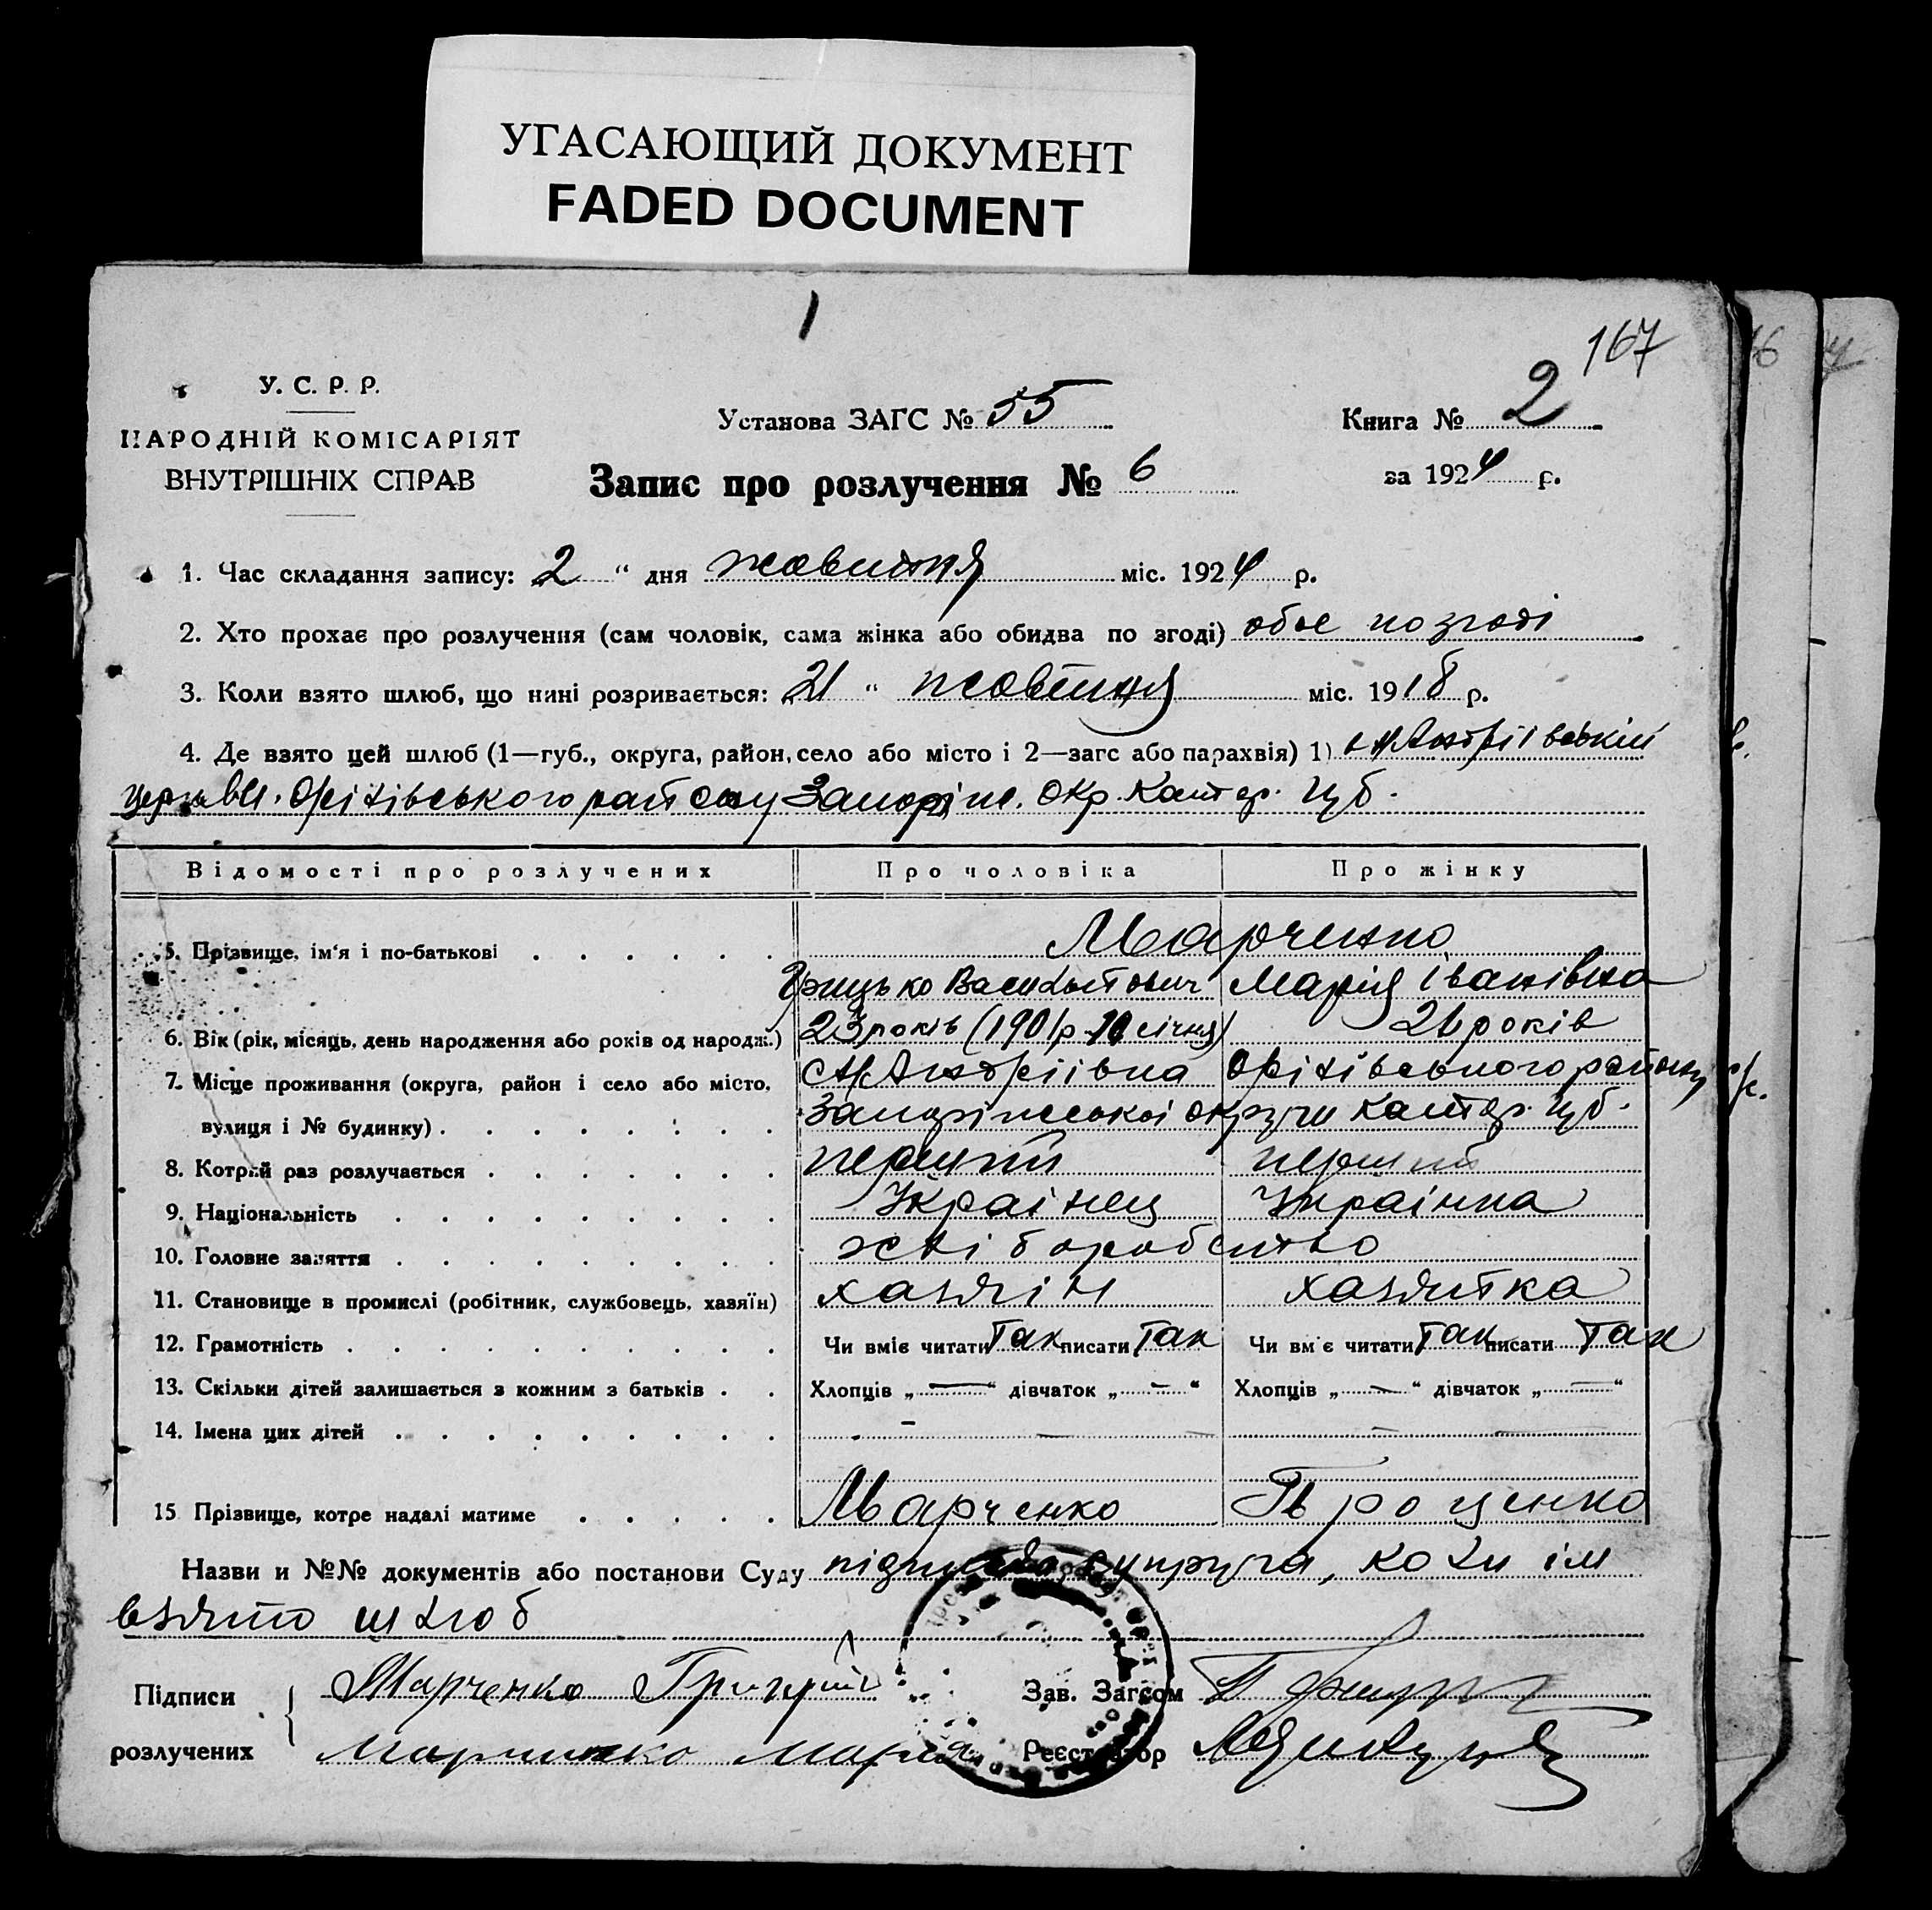 УГАСАЮЩИЙ ДОКУМЕНТ
FADED DOCUMENT
1
167
У. С. Р. Р.
НАРОДНІЙ КОМІСАРІЯТ
ВНУТРІШНІХ СПРАВ
Установа ЗАГС № 55
Книга № 2
Запис про розлучення № 6
за 1924 р.
1. Час складання запису: 2 " дня жовтня міс. 1924 р.
2. Хто прохає про розлучення (сам чоловік, сама жінка або обидва по згоді) обоє по згоді
3. Коли взято шлюб, що нині розривається: 21 " жовтня міс. 1918 р.
4. Де взято цей шлюб (1—губ., округа, район, село або місто і 2—загс або парахвія) 1) Андріївській
церкви. Оріхівського району Запоріж. окр. Катер. губ.
Відомості про розлучених Про чоловіка Про жінку
5. Прізвище, ім'я і по-батькові Марченко
Грицько Васильович Марія Іванівна
6. Вік (рік, місяць, день народження або років од народж.) 23 років (1901 р 10 січня) 21 років
7. Місце проживання (округа, район і село або місто, Андріівка Оріхівського району
вулиця і № будинку) Запоріжської округи Катер. губ.
8. Котрий раз розлучається перший перший
9. Національність Українец Українка
10. Головне заняття хліборобство
11. Становище в промислі (робітник, службовець, хазяїн) хазяін хазяйка
12. Грамотність Чи вміє читати Так писати Так Чи вміє читати Так писати Так
13. Скільки дітей залишається з кожним з батьків Хлопців „ — “ дівчаток „ — “ Хлопців „ — “ дівчаток „ — “
14. Імена цих дітей - — — — —
15 Прізвище, котре надалі матиме Марченко Троценко
Назви и №№ документів або постанови Суду підписка супруга, коли ім
взято шлюб
Підписи Марченко Григорій Зав. Загсом
розлучених Марченко Мария Реєстратор